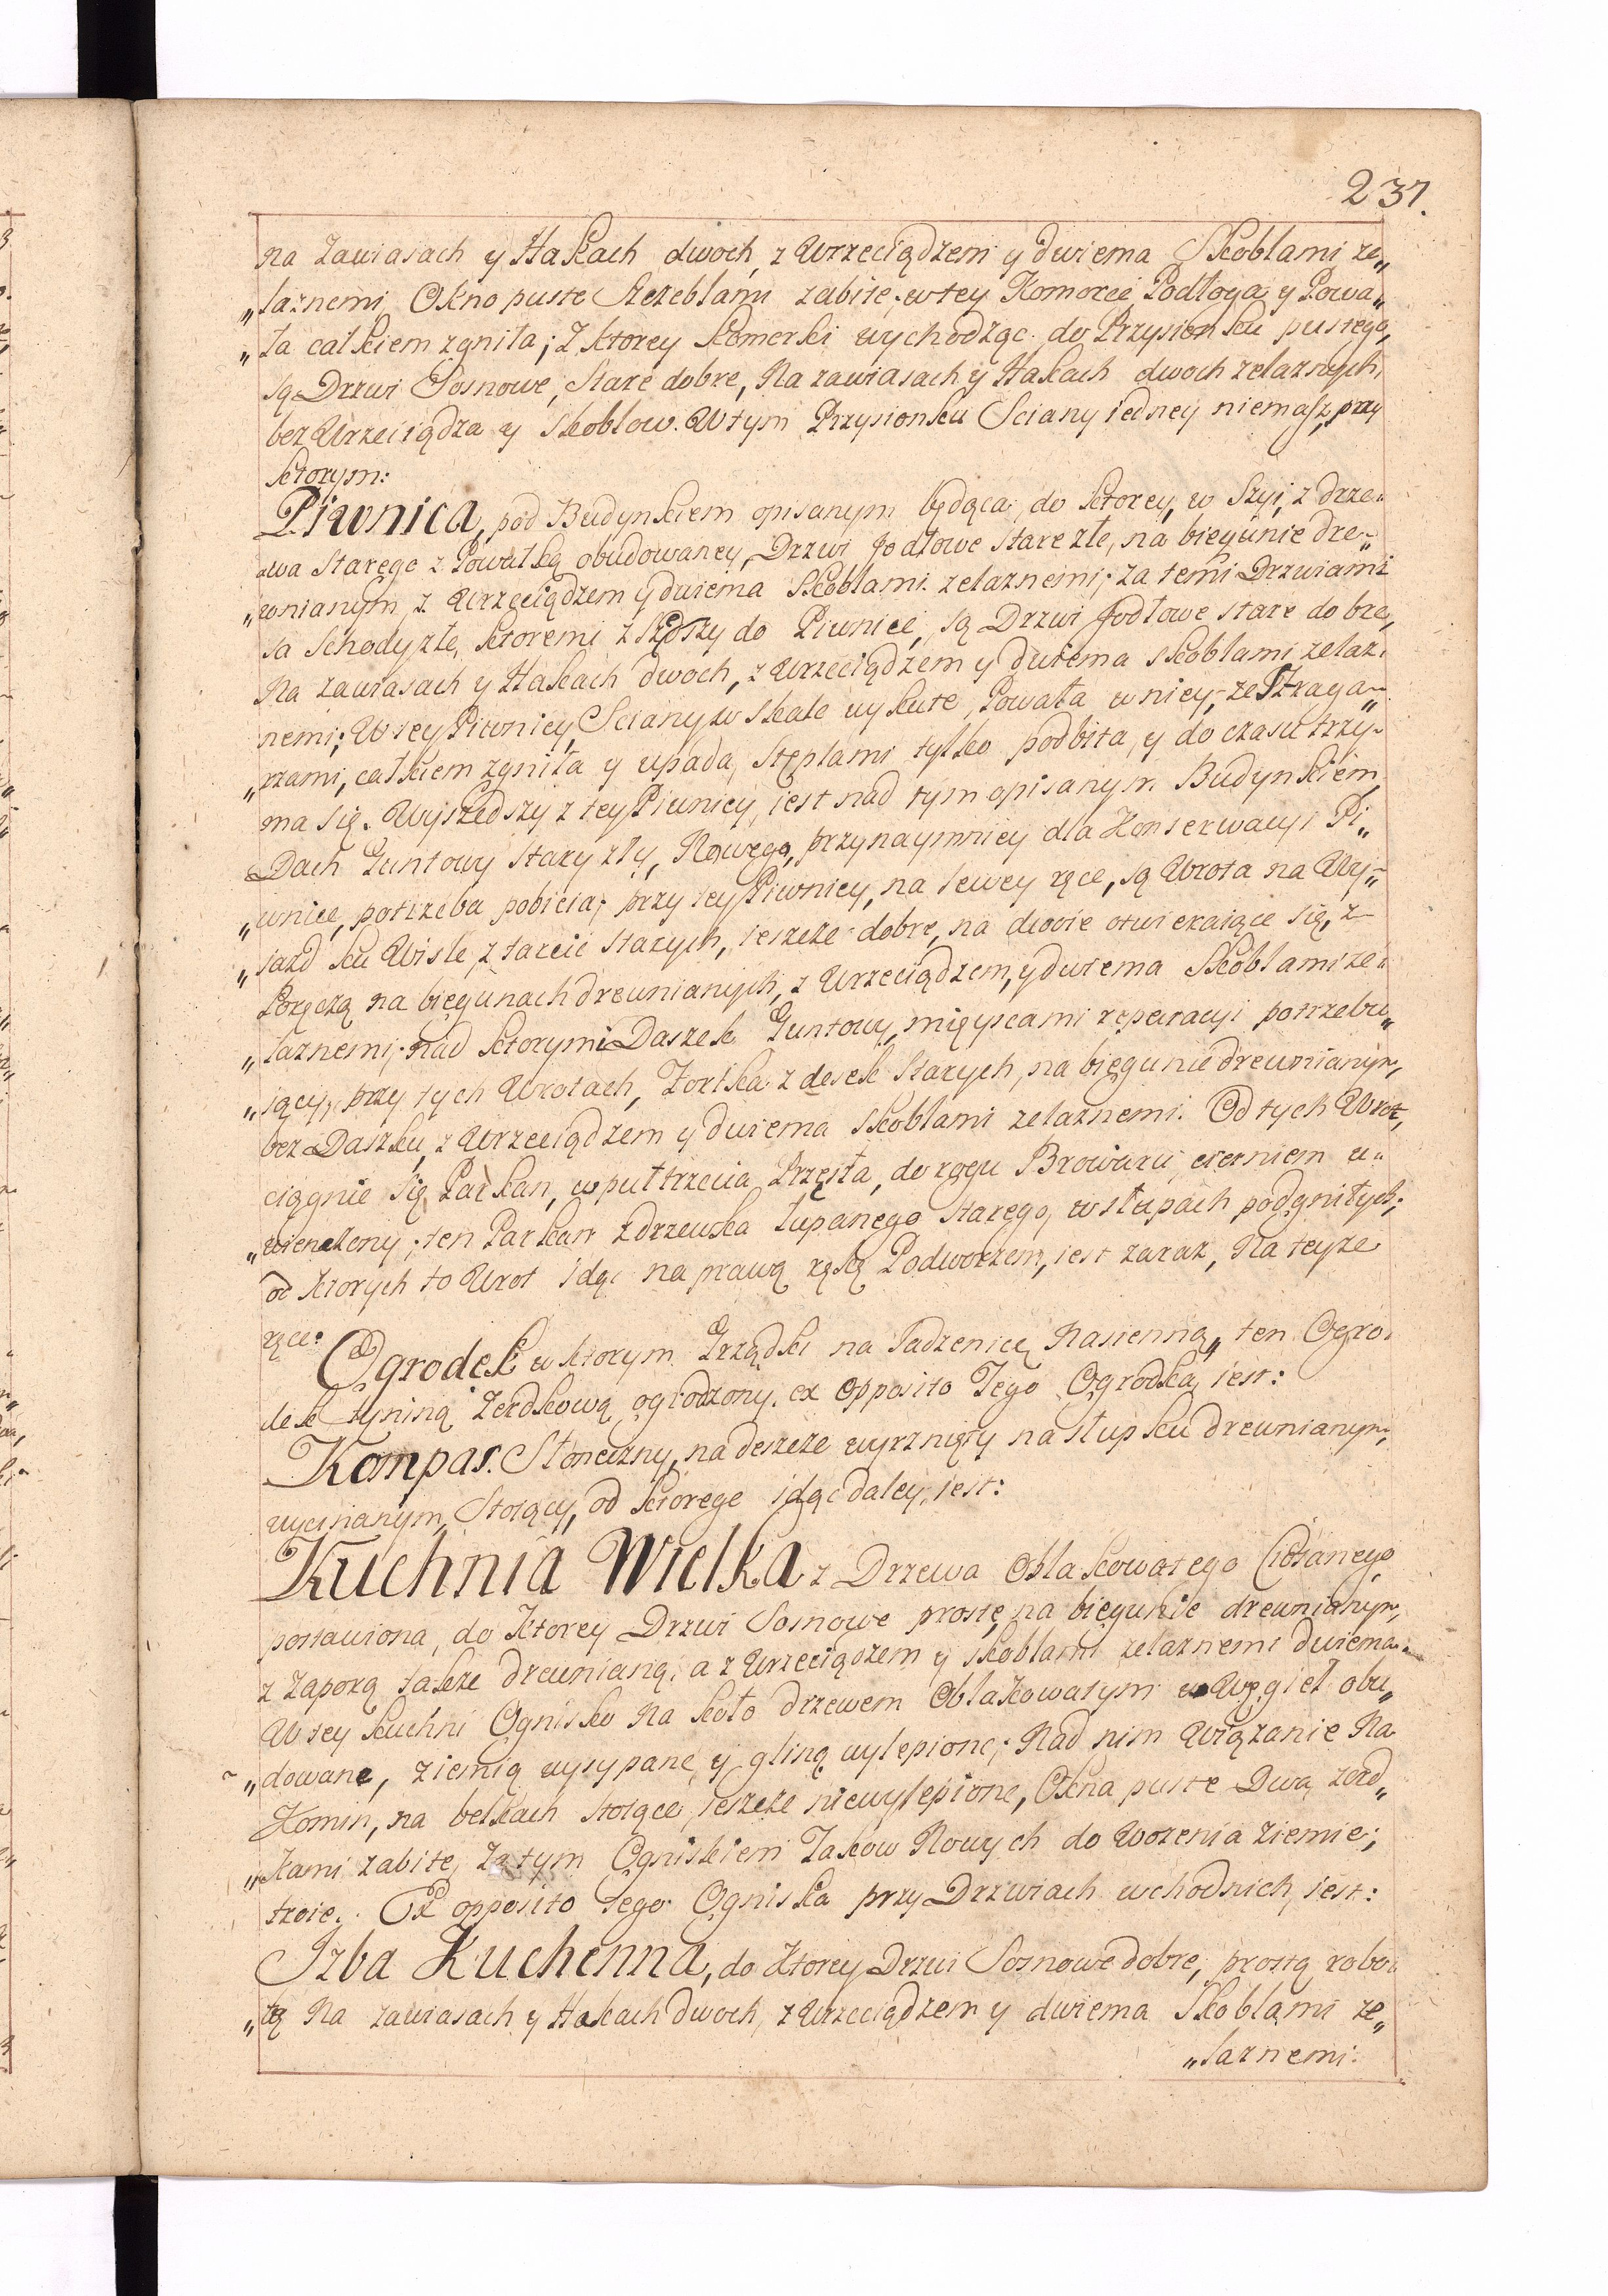 237.
na Zawiasach y Hakach dwoch, z Wrzeciądzem y dwiema Skoblami że„
„laznemi, Okno puste Szczeblami zabite. w tey Komorce, Podłoga y Powa„
„ła całkiem zgniła; z ktorey Komorki wychodząc do Przysionku pustego,
są Drzwi Sosnowe, Stare dobre, Na zawiasach y Hakach dwoch zelaznych,
bez Wrzeciądza y Skoblow. W tym Przysionku Sciany iedney niemasz, przy
ktorym:
Piwnica, pod Budynkiem opisanym będąca, do ktorey, w Szyi, z drze„
„wa Starego z Powałką obudowaney, Drzwi Jodłowe stare złe, na biegunie dre„
„wnianym, z Wrzeciądzem y dwiema Skoblami zelaznemi; za temi Drzwiami
sa Schody złe, ktoremi zszedszy do Piwnice, są Drzwi Jodłowe stare dobre,
Na zawiasach y Hakach dwoch, z Wrzeciądzem y dwiema skoblami zelaz„
nemi; W tey Piwnicy Sciany w Skale wykute, Powała w niey, ze Straga„
„rzami, całkiem zgniła y upada, Stęplami tylko podbita, y do czasu trzy„
ma się. Wyszedszy z tey Piwnicy, iest nad tym opisanym Budynkiem
Dach Guntowy stary zły, Nowego, przynaymniey dla Konserwacyi Pi„
„wnice, potrzeba pobicia; przy tey Piwnicy, na lewey ręce, są Wrota na Wy„
„jazd ku Wisle, z tarcic starych, ieszcze dobre, na dwoie otwieraiące się, z
Poręczą na biegunach drewnianych, z Wrzeciądzem, y dwiema Skoblami ze„
„laznemi; nad ktorymi Daszek Guntowy, mięyscami reperacyi potrzebu„
„iący, przy tych Wrotach, Fortka z desek Starych, na biegunie drewnianym,
bez Daszku, z Wrzeciądzem y dwiema skoblami zelaznemi. Od tych Wrot,
ciągnie się Parkan, w puł trzecia Przęsła, do rogu Browaru, cierniem u„
„wienczony; ten Parkan z drzewka łupanego starego, w słupach podgniłych;
od ktorych to Wrot idąc na prawą ręką Podworzem, iest zaraz, na teyze
ręce:
Ogrodek w ktorym Grządki na Sadzenicę Nasienną, ten Ogro„
dek tyniną Zerdkową ogrodzony. ex opposito Tego Ogrodka iest:
Kompas. Słoneczny, na deszcze wyrznięty na słupku drewnianym,
wycinanym, Stoiący, od ktorego idąc daley, iest:
Kuchnia Wielka z Drzewa Oblakowatego Ciosanego
postawiona, do Ktorey Drzwi Sosnowe proste, na biegunie drewnianym,
z Zaporą także drewnianą, a z Wrzeciądzem y skoblami zelaznemi dwiema.
W tey kuchni Ognisko Na koło drzewem Oblakowatym w Węgieł obu„
„dowane, ziemią wysypane y gliną wylepione; Nad nim Wiązanie Na
Komin, na belkach stoiące, ieszcze niewylepione, Okna puste Dwa, zerd„
„kami zabite, za tym Ogniskiem Takow Nowych do Wozenia ziemie;
troie. Ex opposito Tego Ogniska przy Drzwiach wchodnich, iest:
Izba Kuchenna, do Ktorey Drzwi Sosnowe dobre, prostą robo„
„tą Na zawiasach y Hakach dwoch, z Wrzeciądzem y dwiema Skoblami że„
„laznemi: